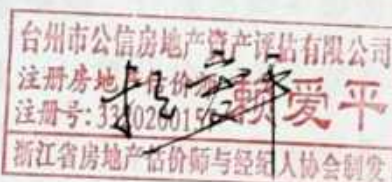 台州市公信房地产资产评估有限公司
注册房地产估价师 赖爱平
注册号:
浙江省房地产估价师与经纪人协会制发